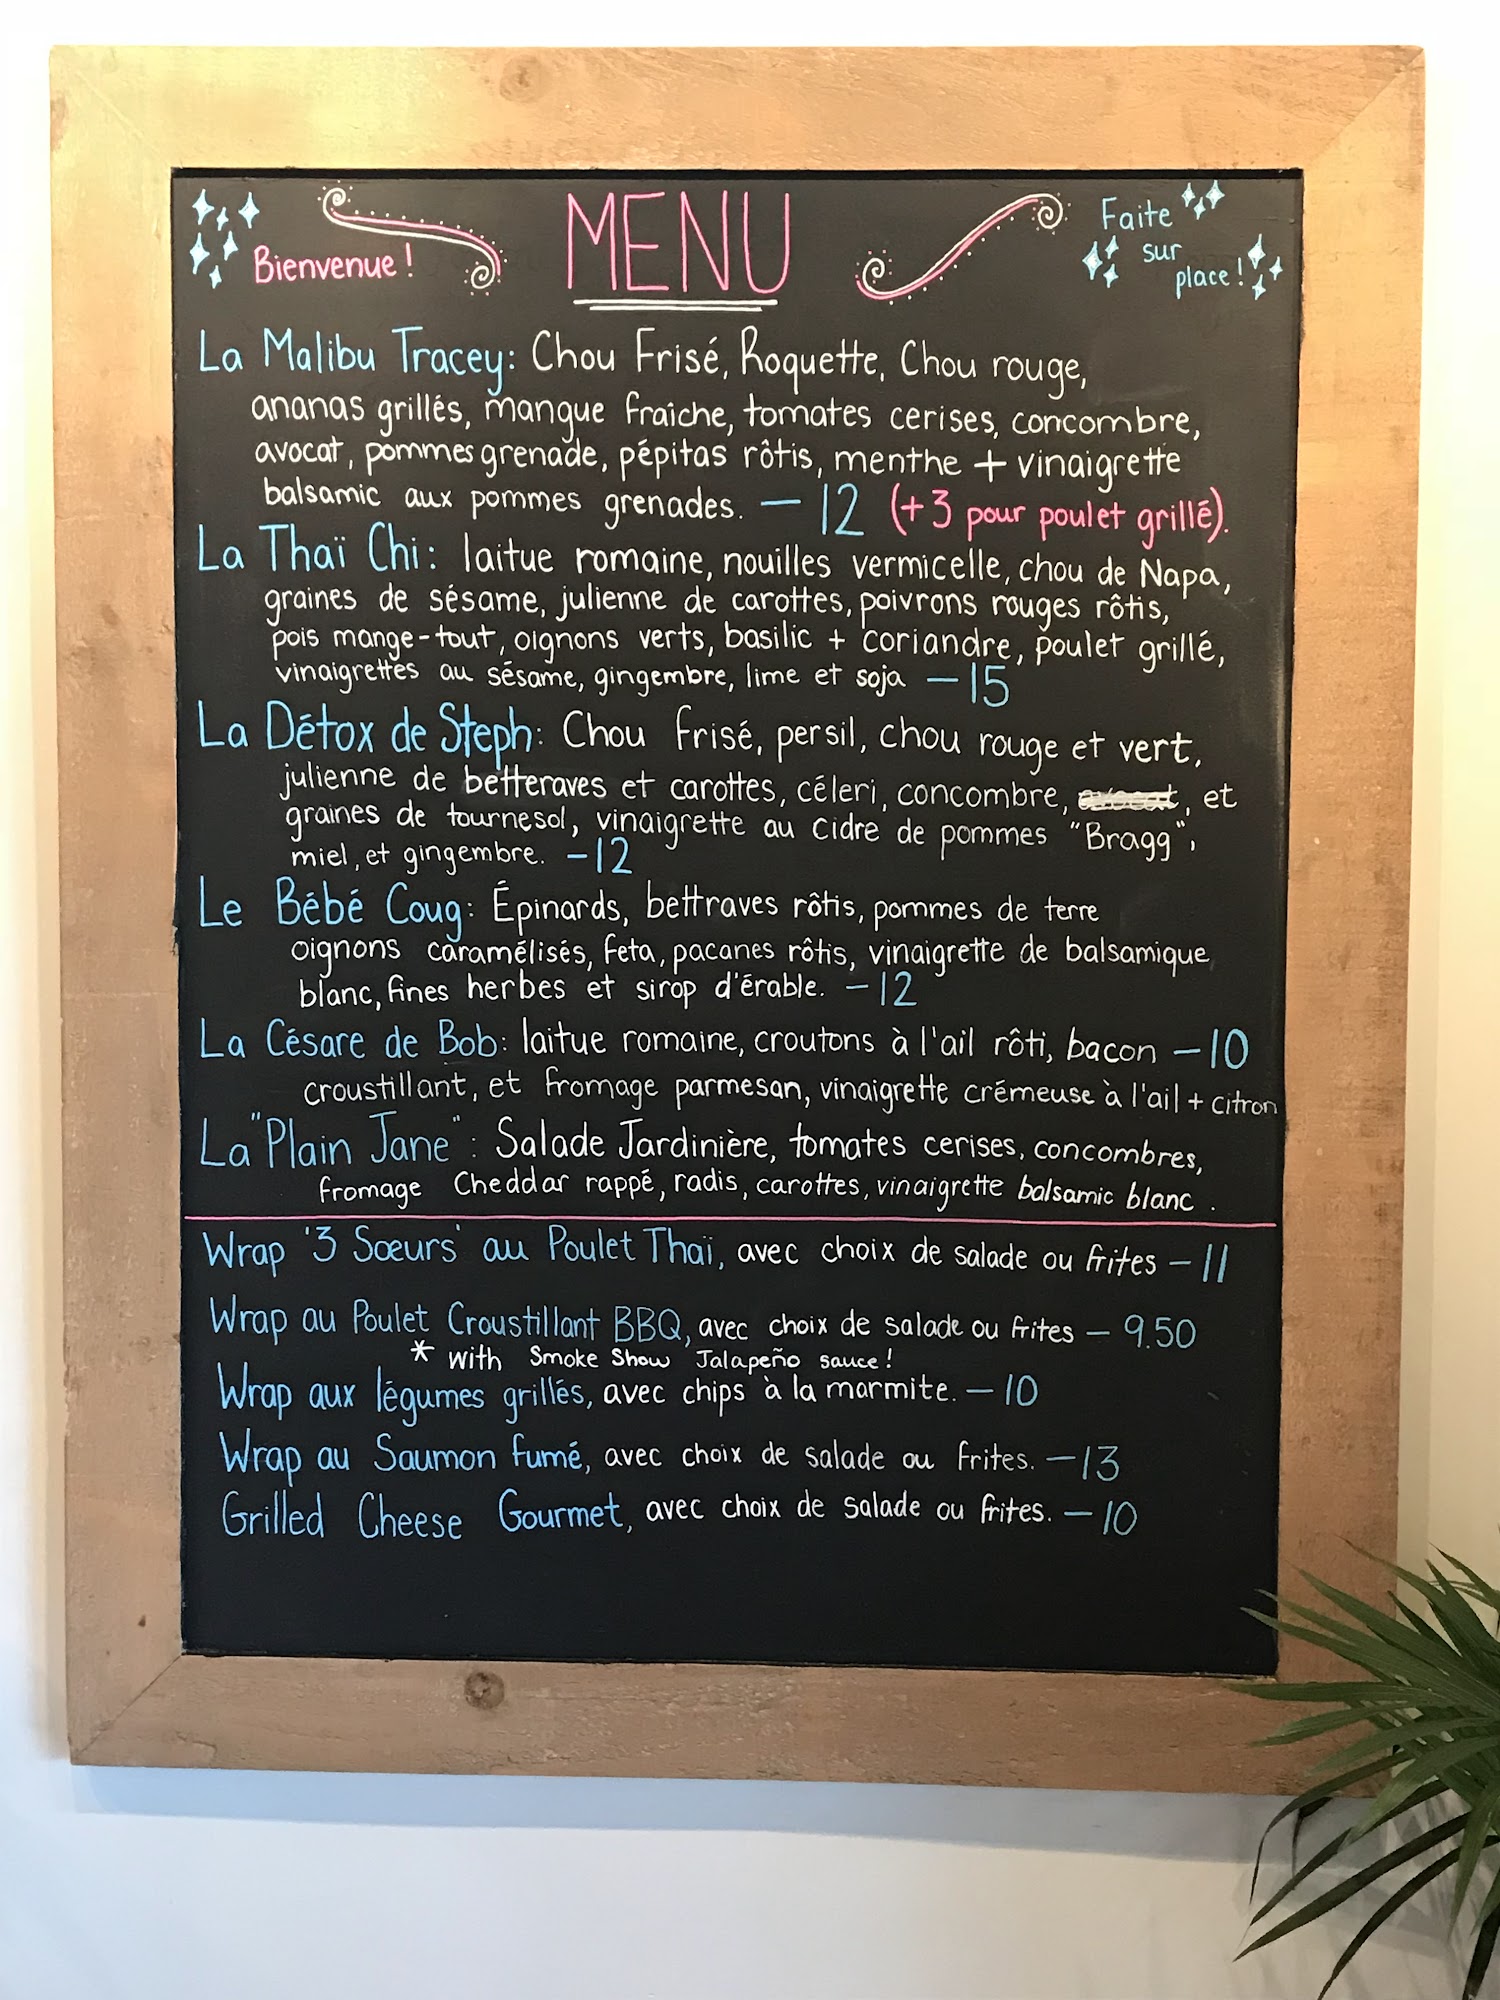 Bienvenue !
MENU
Faite
sur
place !
La Malibu Tracey: Chou Frisé, Roquette, Chou rouge,
ananas grillés, mangue fraîche, tomates cerises, concombre,
avocat, pommes grenade, pépitas rôtis, menthe + vinaigrette
balsamic aux pommes grenades. - 12 (+3 pour poulet grillé).
La Thaï Chi: laitue romaine, nouilles vermicelle, chou de Napa,
graines de sésame, julienne de carottes, poivrons rouges rôtis,
pois mange-tout, oignons verts, basilic + coriandre, poulet grillé,
vinaigrettes au sésame, gingembre, lime et soja - 15
La Détox de Steph: Chou frisé, persil, chou rouge et vert,
julienne de betteraves et carottes, céleri, concombre, avocat, et
graines de tournesol, vinaigrette au cidre de pommes "Bragg",
miel, et gingembre. - 12
Le Bébé Coug: Épinards, bettraves rôtis, pommes de terre
oignons caramélisés, feta, pacanes rôtis, vinaigrette de balsamique
blanc, fines herbes et sirop d'érable. - 12
La Césare de Bob: laitue romaine, croutons à l'ail rôti, bacon - 10
croustillant, et fromage parmesan, vinaigrette crémeuse à l'ail + citron
La "Plain Jane": Salade Jardinière, tomates cerises, concombres,
fromage Cheddar rappé, radis, carottes, vinaigrette balsamic blanc.
Wrap '3 Sœurs' au Poulet Thaï, avec choix de salade ou frites - 11
Wrap au Poulet Croustillant BBQ, avec choix de salade ou frites - 9.50
* with Smoke Show Jalapeño sauce !
Wrap aux légumes grillés, avec chips à la marmite. - 10
Wrap au Saumon fumé, avec choix de salade ou frites. - 13
Grilled Cheese Gourmet, avec choix de salade ou frites. - 10